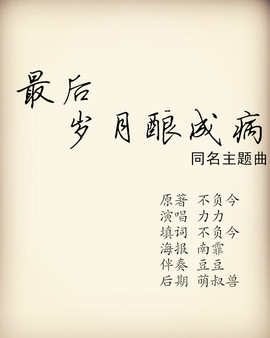 最后
岁月酿成病
同名主题曲
原著 不负今
演唱 力力
填词 不负今
海报 南霏
伴奏 豆豆
后期 萌叔兽